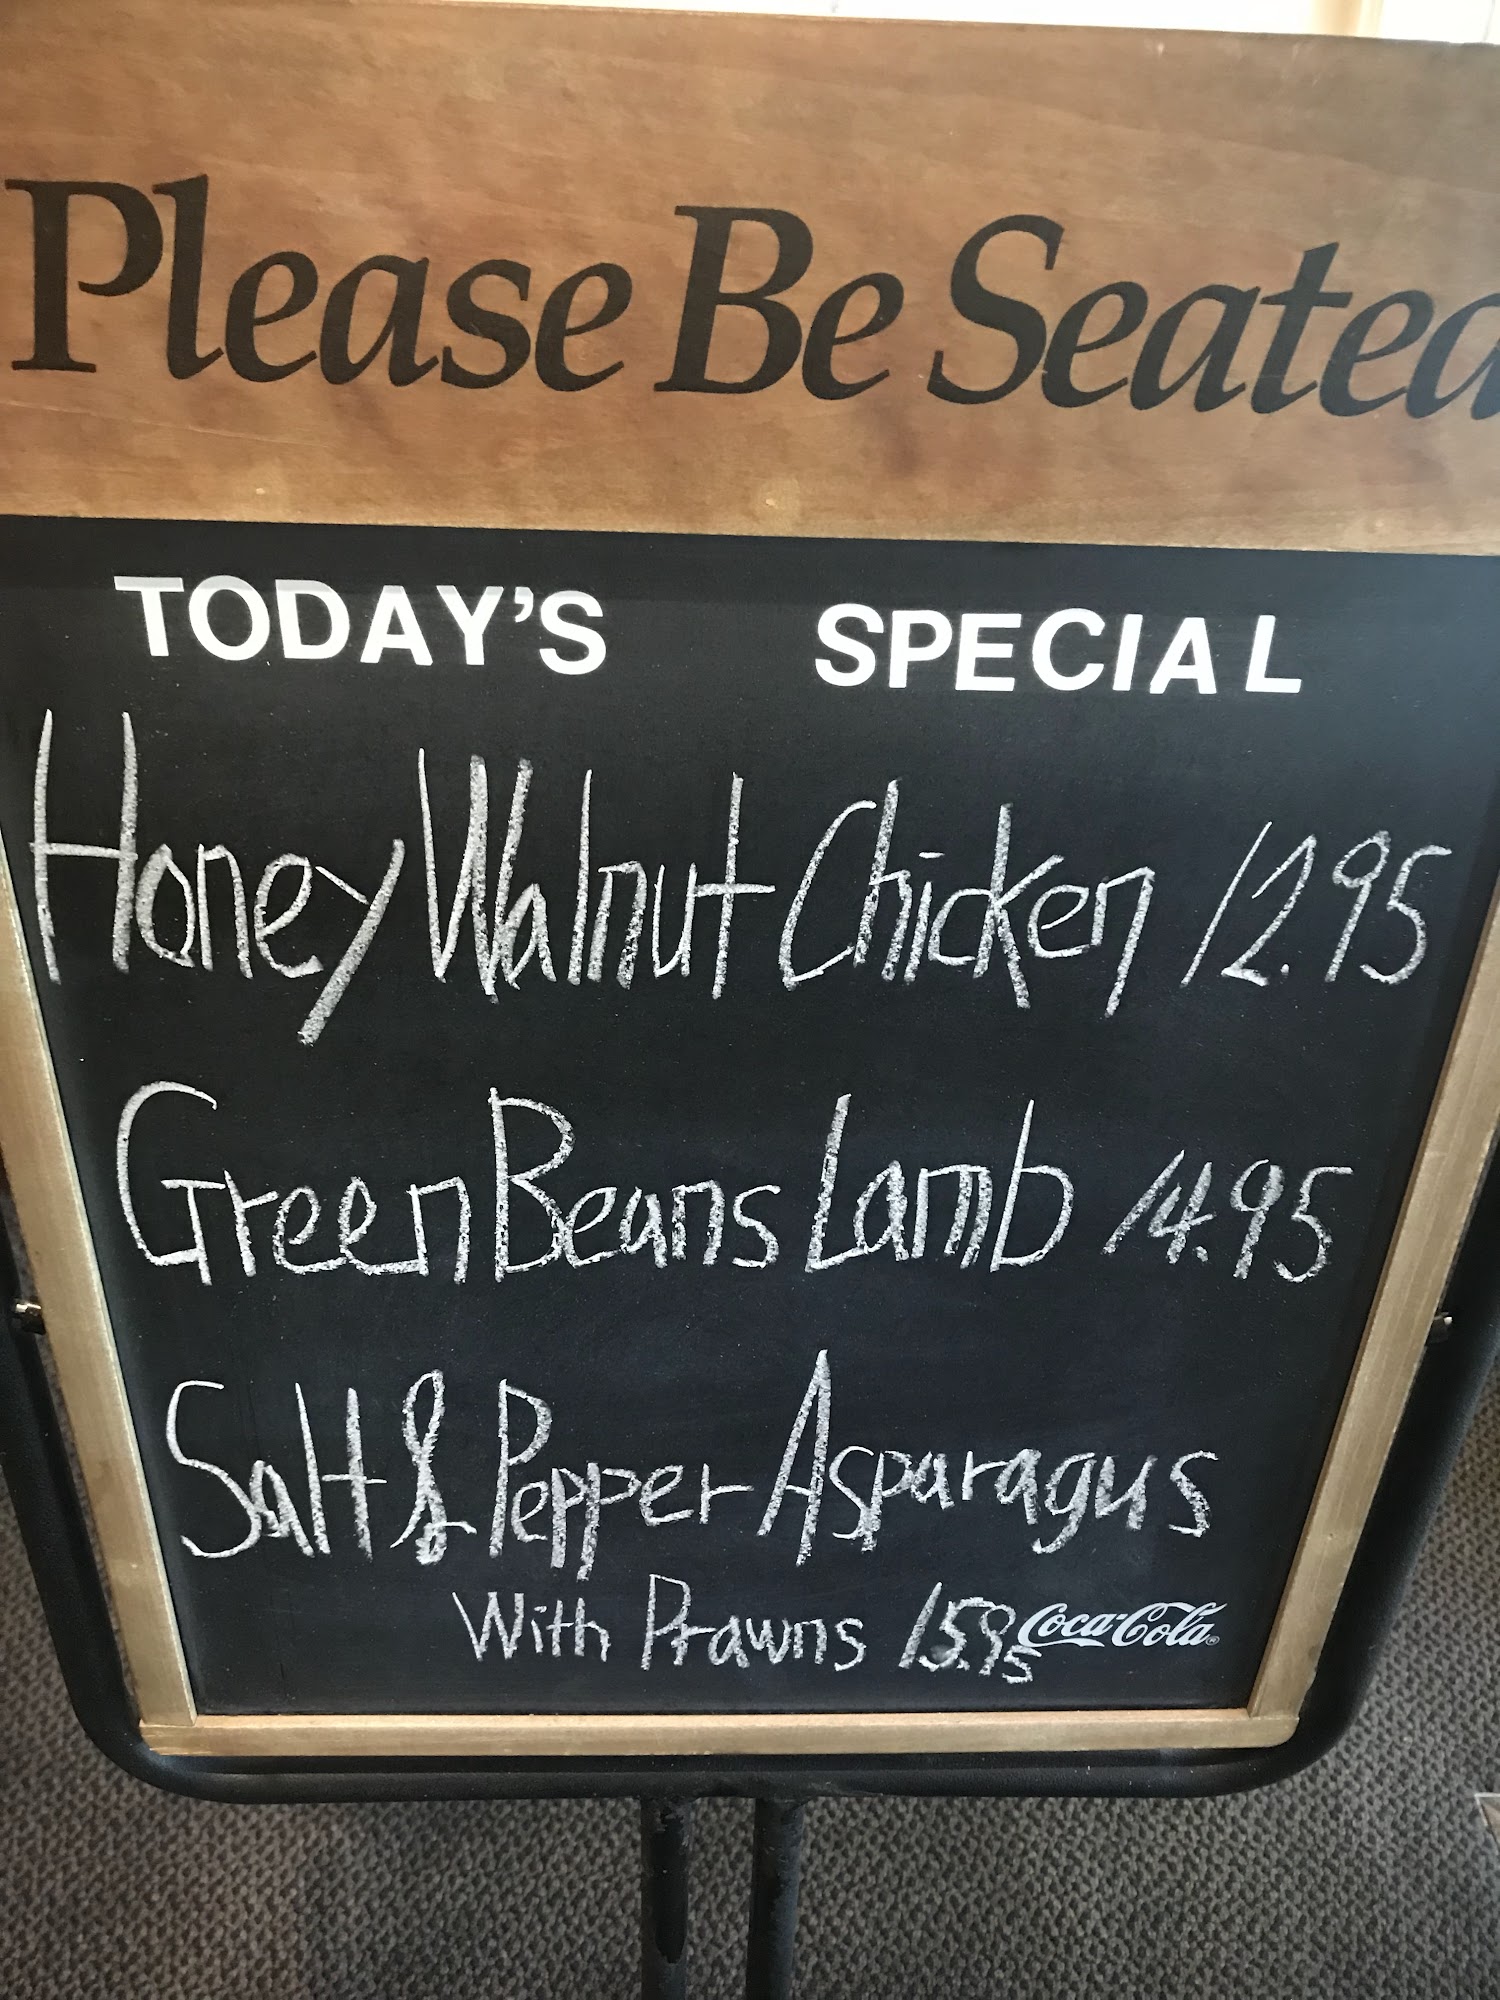 Please Be Seated
TODAY'S SPECIAL
Honey Walnut Chicken 12.95
Green Beans Lamb 14.95
Salt & Pepper Asparagus
With Prawns 15.95 Coca-Cola®